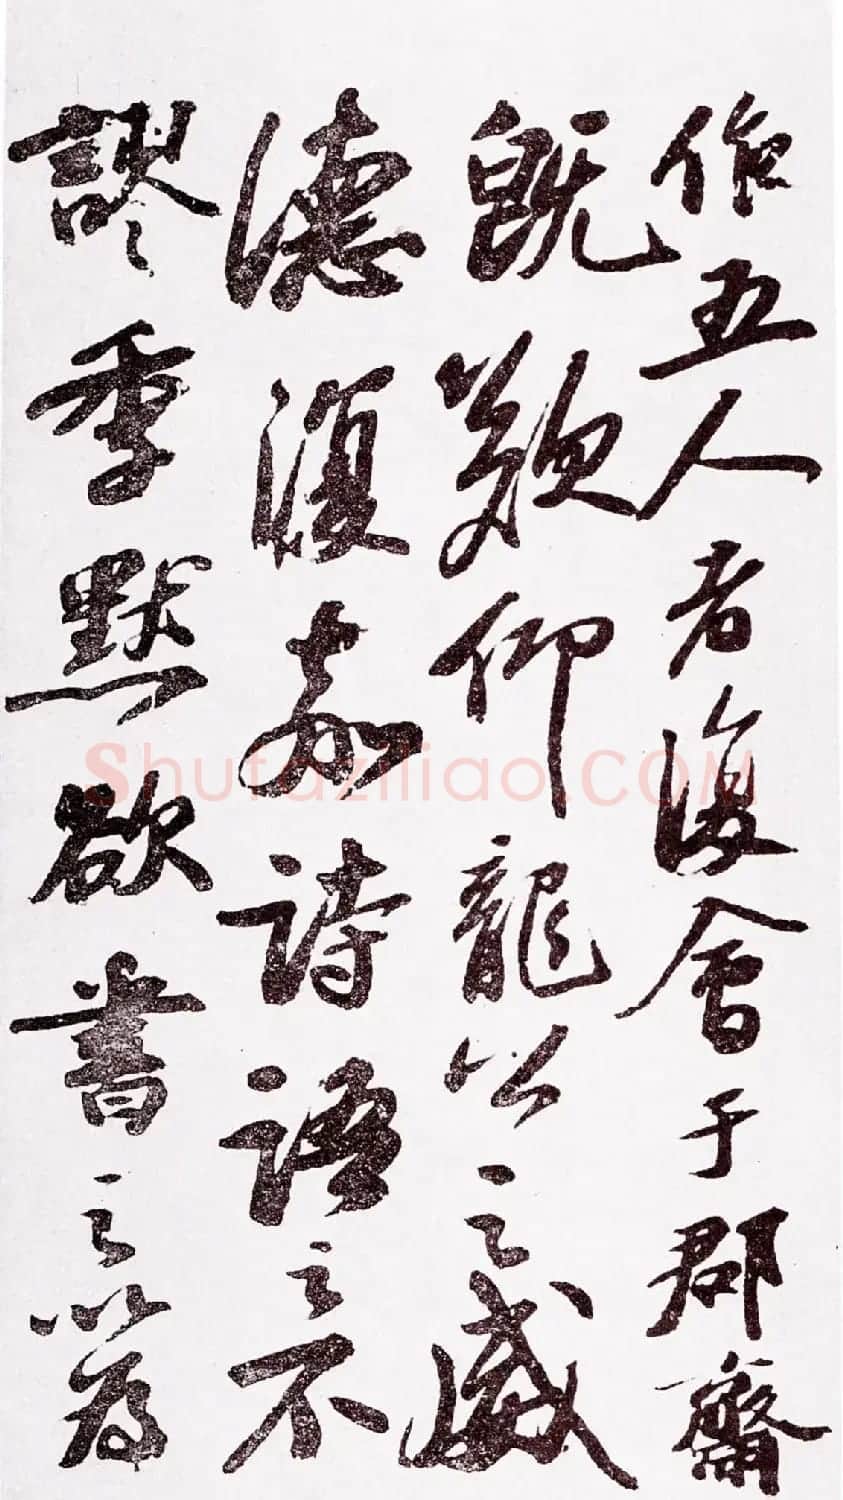 五人者復會于郡齋
既歎仰龍公之威
德復嘉詩語之不
謬季默欲書之以為
Shufaziliao.COM